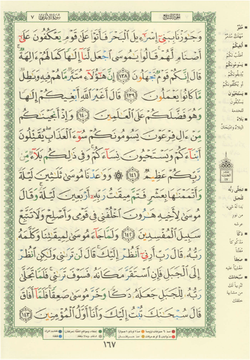 وَجَٰوَزْنَا بِبَنِىٓ إِسْرَٰٓءِيلَ ٱلْبَحْرَ فَأَتَوْا۟ عَلَىٰ قَوْمٍ يَعْكُفُونَ عَلَىٰٓ
أَصْنَامٍ لَّهُمْ قَالُوا۟ يَٰمُوسَى ٱجْعَل لَّنَآ إِلَٰهًا كَمَا لَهُمْ ءَالِهَةٌ
قَالَ إِنَّكُمْ قَوْمٌ تَجْهَلُونَ ١٣٨ إِنَّ هَٰٓؤُلَآءِ مُتَبَّرٌ مَّا هُمْ فِيهِ وَبَٰطِلٌ
مَّا كَانُوا۟ يَعْمَلُونَ ١٣٩ قَالَ أَغَيْرَ ٱللَّهِ أَبْغِيكُمْ إِلَٰهًا
وَهُوَ فَضَّلَكُمْ عَلَى ٱلْعَٰلَمِينَ ١٤٠ وَإِذْ أَنجَيْنَٰكُم
مِّنْ ءَالِ فِرْعَوْنَ يَسُومُونَكُمْ سُوٓءَ ٱلْعَذَابِ يُقَتِّلُونَ
أَبْنَآءَكُمْ وَيَسْتَحْيُونَ نِسَآءَكُمْ وَفِى ذَٰلِكُم بَلَآءٌ مِّن
رَّبِّكُمْ عَظِيمٌ ١٤١ ۞ وَوَٰعَدْنَا مُوسَىٰ ثَلَٰثِينَ لَيْلَةً
وَأَتْمَمْنَٰهَا بِعَشْرٍ فَتَمَّ مِيقَٰتُ رَبِّهِۦٓ أَرْبَعِينَ لَيْلَةً وَقَالَ
مُوسَىٰ لِأَخِيهِ هَٰرُونَ ٱخْلُفْنِى فِى قَوْمِى وَأَصْلِحْ وَلَا تَتَّبِعْ
سَبِيلَ ٱلْمُفْسِدِينَ ١٤٢ وَلَمَّا جَآءَ مُوسَىٰ لِمِيقَٰتِنَا وَكَلَّمَهُۥ
رَبُّهُۥ قَالَ رَبِّ أَرِنِىٓ أَنظُرْ إِلَيْكَ قَالَ لَن تَرَىٰنِى وَلَٰكِنِ ٱنظُرْ
إِلَى ٱلْجَبَلِ فَإِنِ ٱسْتَقَرَّ مَكَانَهُۥ فَسَوْفَ تَرَىٰنِى فَلَمَّا تَجَلَّىٰ
رَبُّهُۥ لِلْجَبَلِ جَعَلَهُۥ دَكًّا وَخَرَّ مُوسَىٰ صَعِقًا فَلَمَّآ أَفَاقَ
قَالَ سُبْحَٰنَكَ تُبْتُ إِلَيْكَ وَأَنَا۠ أَوَّلُ ٱلْمُؤْمِنِينَ ١٤٣
١٦٧